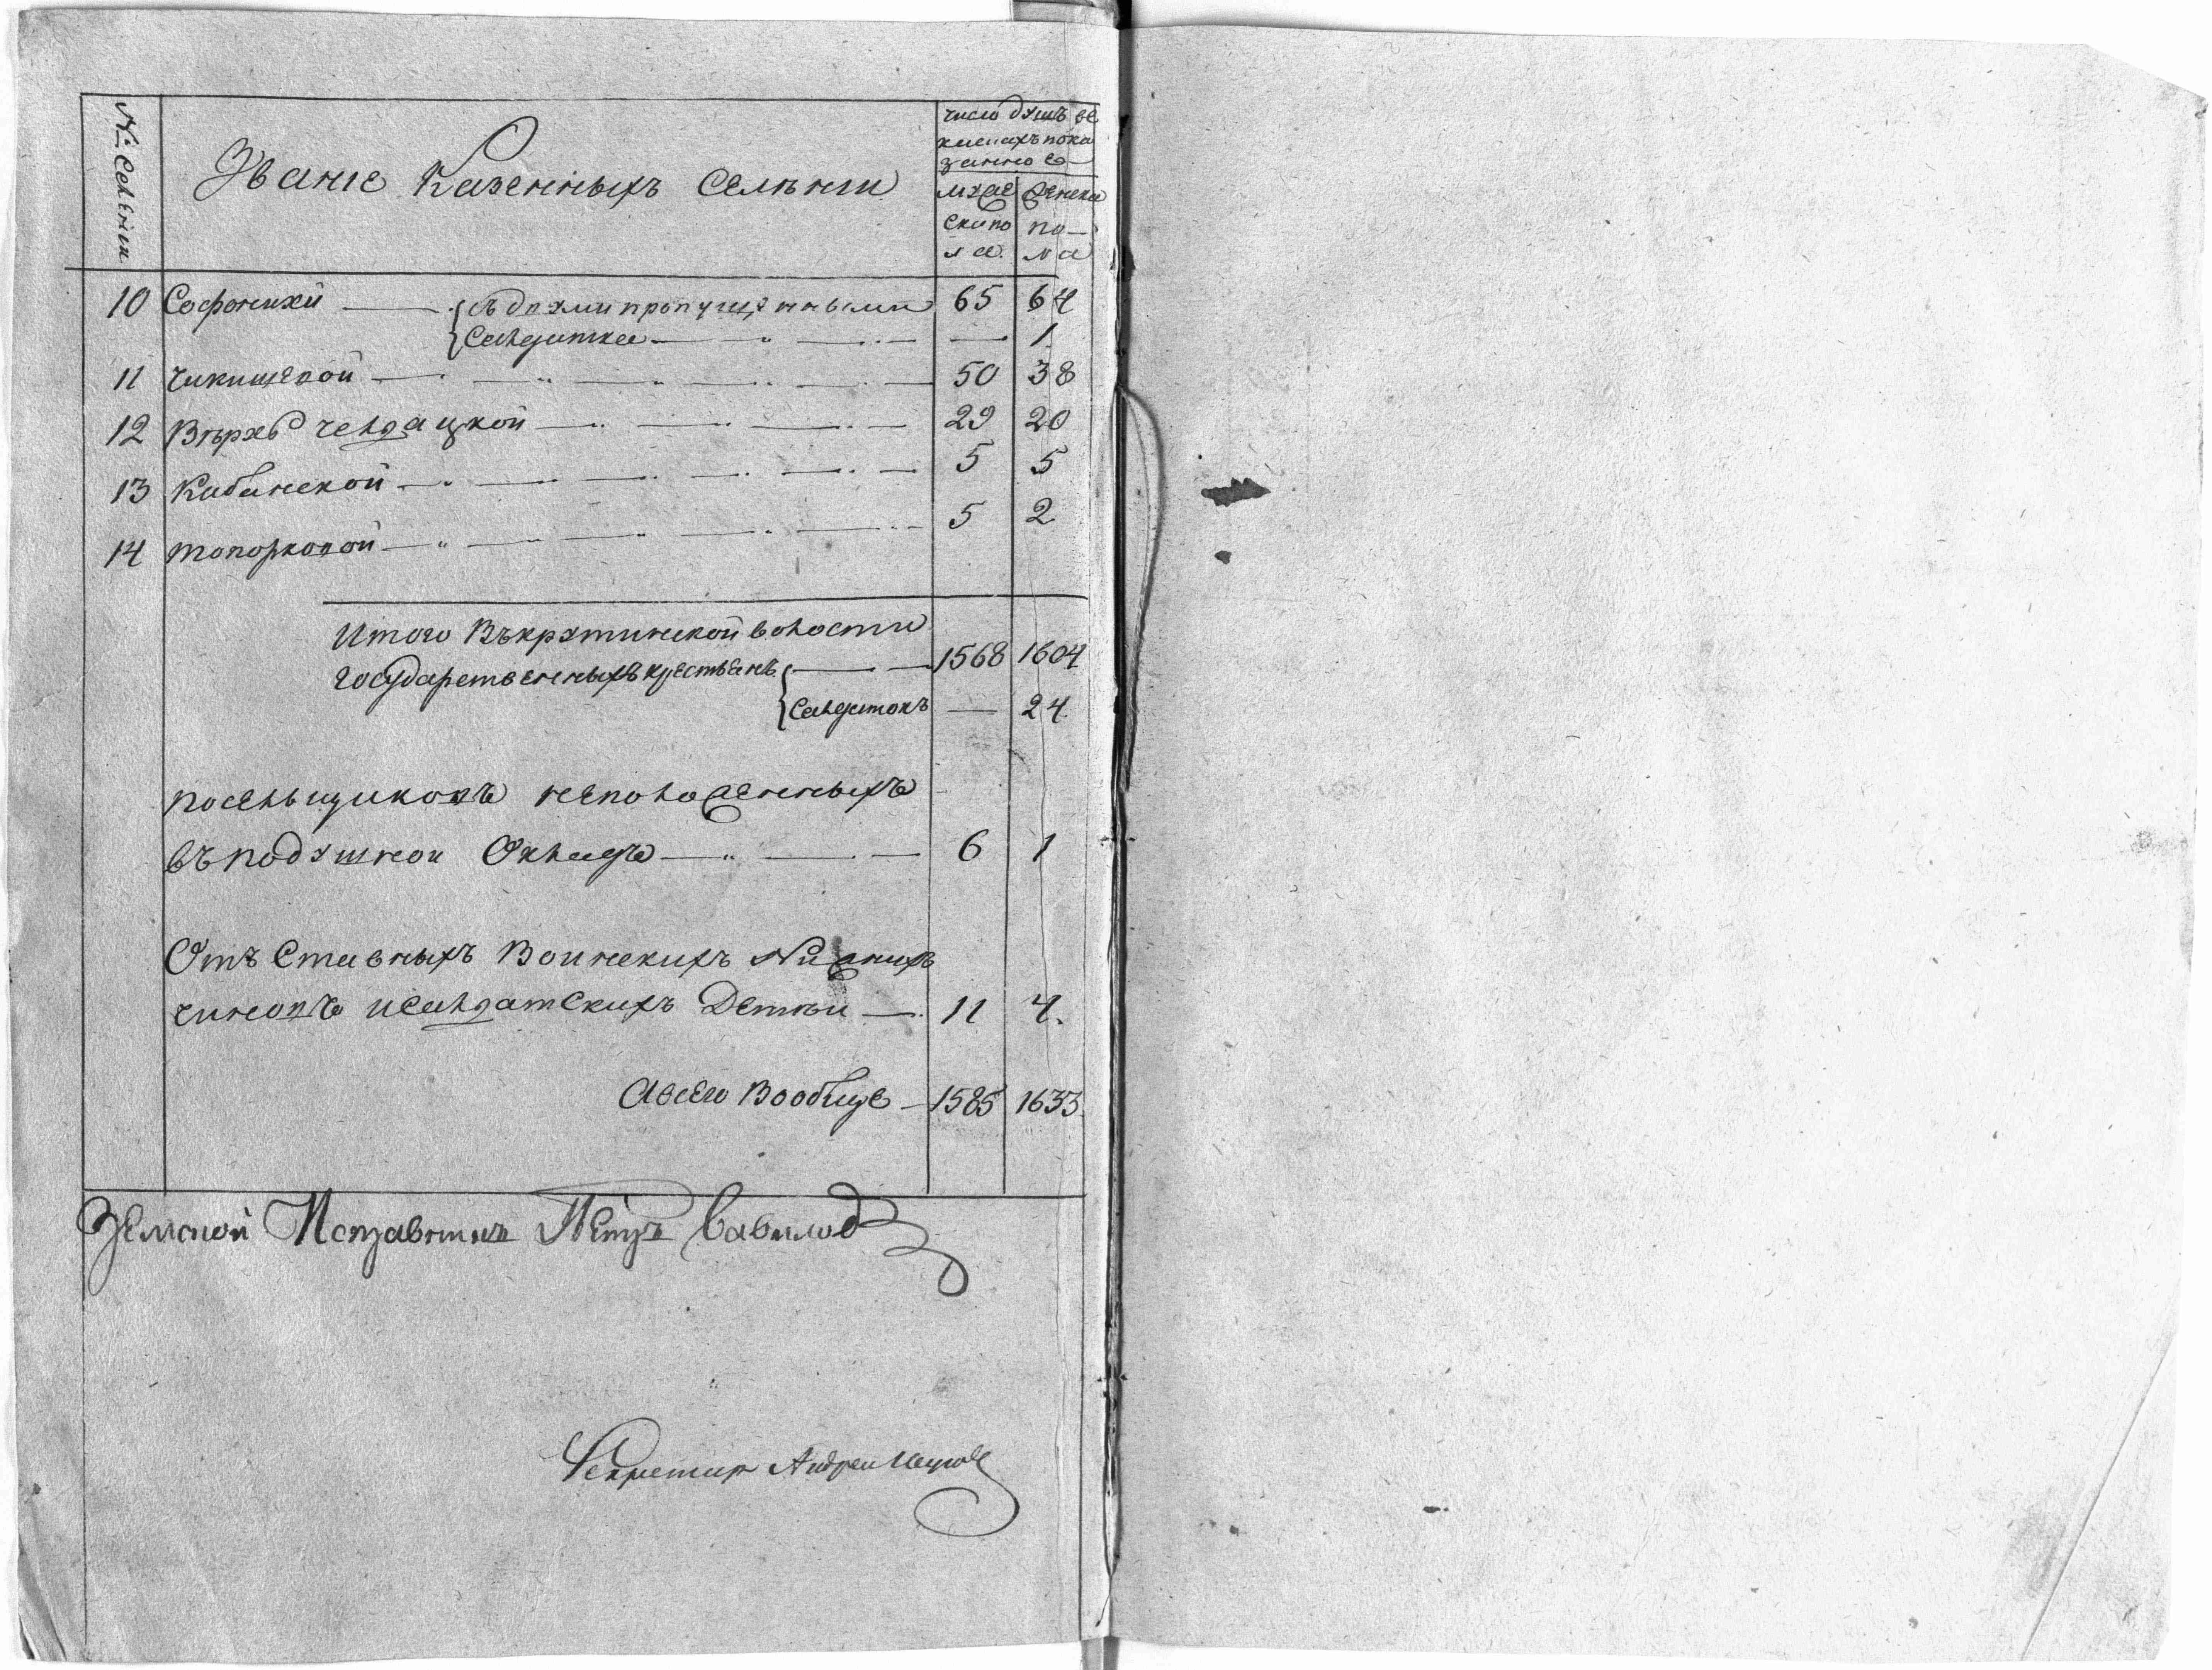 № Селении
Звание Казенныхъ Селѣнии
число душъ въ
книгахъ пока
занное
мужеска пола
женска пола
10 Сафонихи съ душми пропущенными 65 64
Салдатка — 1
11 Чикишевой 50 38
12 Вѣрхъ чендацкой 29 20
13 Кабанской 5 5
14 топорковой 5 2
Итого Въкрутинской волости
государственныхъ крестьянъ 1568 1604
Салдатокъ — 24
посельщиковъ неположенныхъ
въ подушнои Окладъ 6 1
Отъ Ставныхъ Воинскихъ Нижнихъ
чиновъ и салдатскихъ Детѣи 11 4.
А всего Вообще 1585 1633.
Земской Исправникъ Петръ Вавилов
Секретарь Андреи